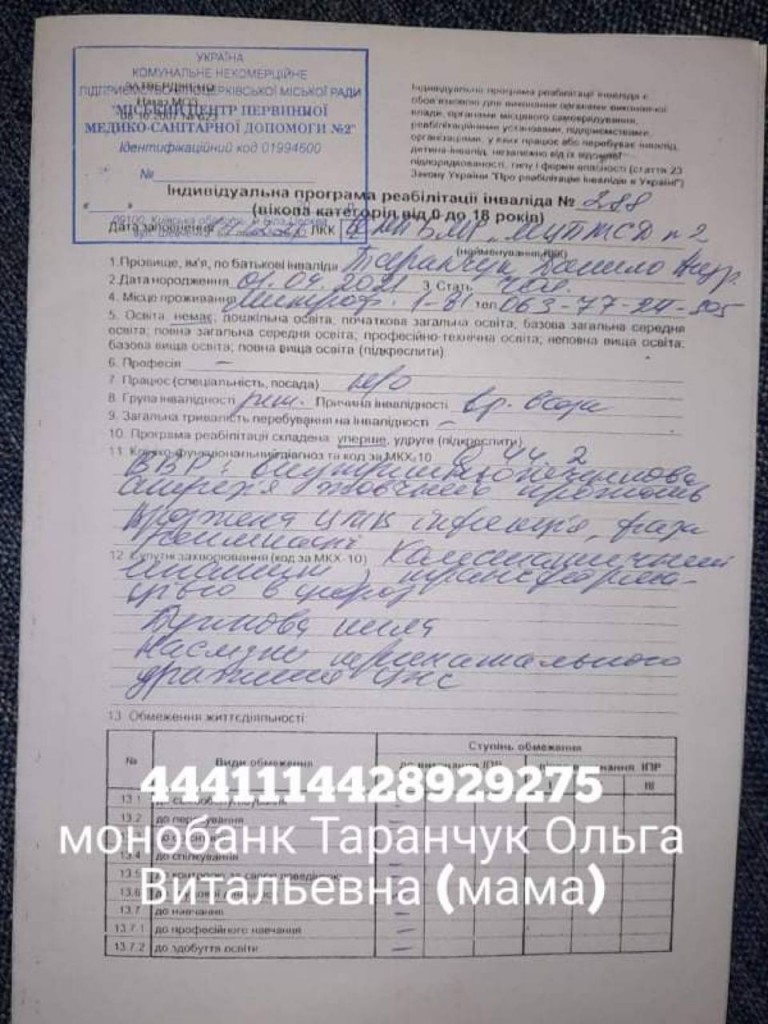 УКРАЇНА
КОМУНАЛЬНЕ НЕКОМЕРЦІЙНЕ
ПІДПРИЄМСТВО БІЛОЦЕРКІВСЬКОЇ МІСЬКОЇ РАДИ
"МІСЬКИЙ ЦЕНТР ПЕРВИННОЇ
МЕДИКО-САНІТАРНОЇ ДОПОМОГИ №2"
Ідентифікаційний код 01994600
№
ЗАТВЕРДЖЕНО
Наказ МОЗ
08.10.2007 № 623
Індивідуальна програма реабілітації інваліда є
обов'язковою для виконання органами виконавчої
влади, органами місцевого самоврядування,
реабілітаційними установами, підприємствами,
організаціями, у яких працює або перебуває інвалід,
дитина-інвалід, незалежно від їх відомчої
підпорядкованості, типу і форми власності (стаття 23
Закону України "Про реабілітацію інвалідів в Україні")
Індивідуальна програма реабілітації інваліда № 288
(вікова категорія від 0 до 18 років)
Дата заповнення ЛКК
(найменування ЛКК)
1. Прізвище, ім'я, по батькові інваліда Таранчук Данило
2. Дата народження 01.04.2021 3. Стать чол.
4. Місце проживання 1-81 тел 063-77-24-505
5. Освіта: немає; дошкільна освіта; початкова загальна освіта; базова загальна середня
освіта; повна загальна середня освіта; професійно-технічна освіта; неповна вища освіта;
базова вища освіта; повна вища освіта (підкреслити)
6. Професія –
7. Працює (спеціальність, посада) ні
8. Група інвалідності Причина інвалідності
9. Загальна тривалість перебування на інвалідності –
10. Програма реабілітації складена уперше, удруге (підкреслити)
11. Клініко-функціональний діагноз та код за МКХ-10 Q 44.2
ВВР: внутрішньопечінкова
атрезія жовчних протоків
Вроджена ЦМВ інфекція, фаза
12. Супутні захворювання (код за МКХ-10) Холестатичний
трансформа-
цією в цироз
Пупкова кила
Наслідки перинатального
ураження ЦНС
13. Обмеження життєдіяльності:
№ Види обмеження Ступінь обмеження
до виконання ІПР ІПР
III
13.1
13.2 до пересування
13.4 до спілкування
13.5 до контролю за своєю поведінкою
13.6
13.7 до навчання
13.7.1 до професійного навчання
13.7.2 до здобуття освіти
4441114428929275
монобанк Таранчук Ольга
Витальевна (мама)